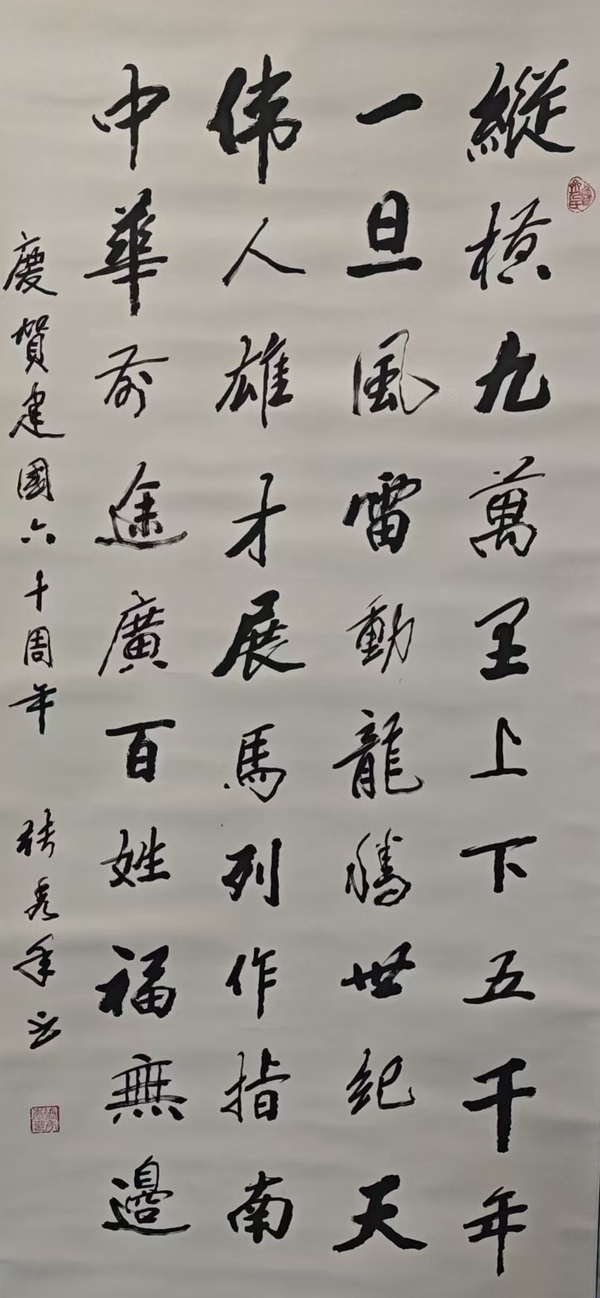 縱横九萬里上下五千年
一旦風雷動龍騰世紀天
伟人雄才展馬列作指南
中華前途廣百姓福無邊
慶賀建國六十周年